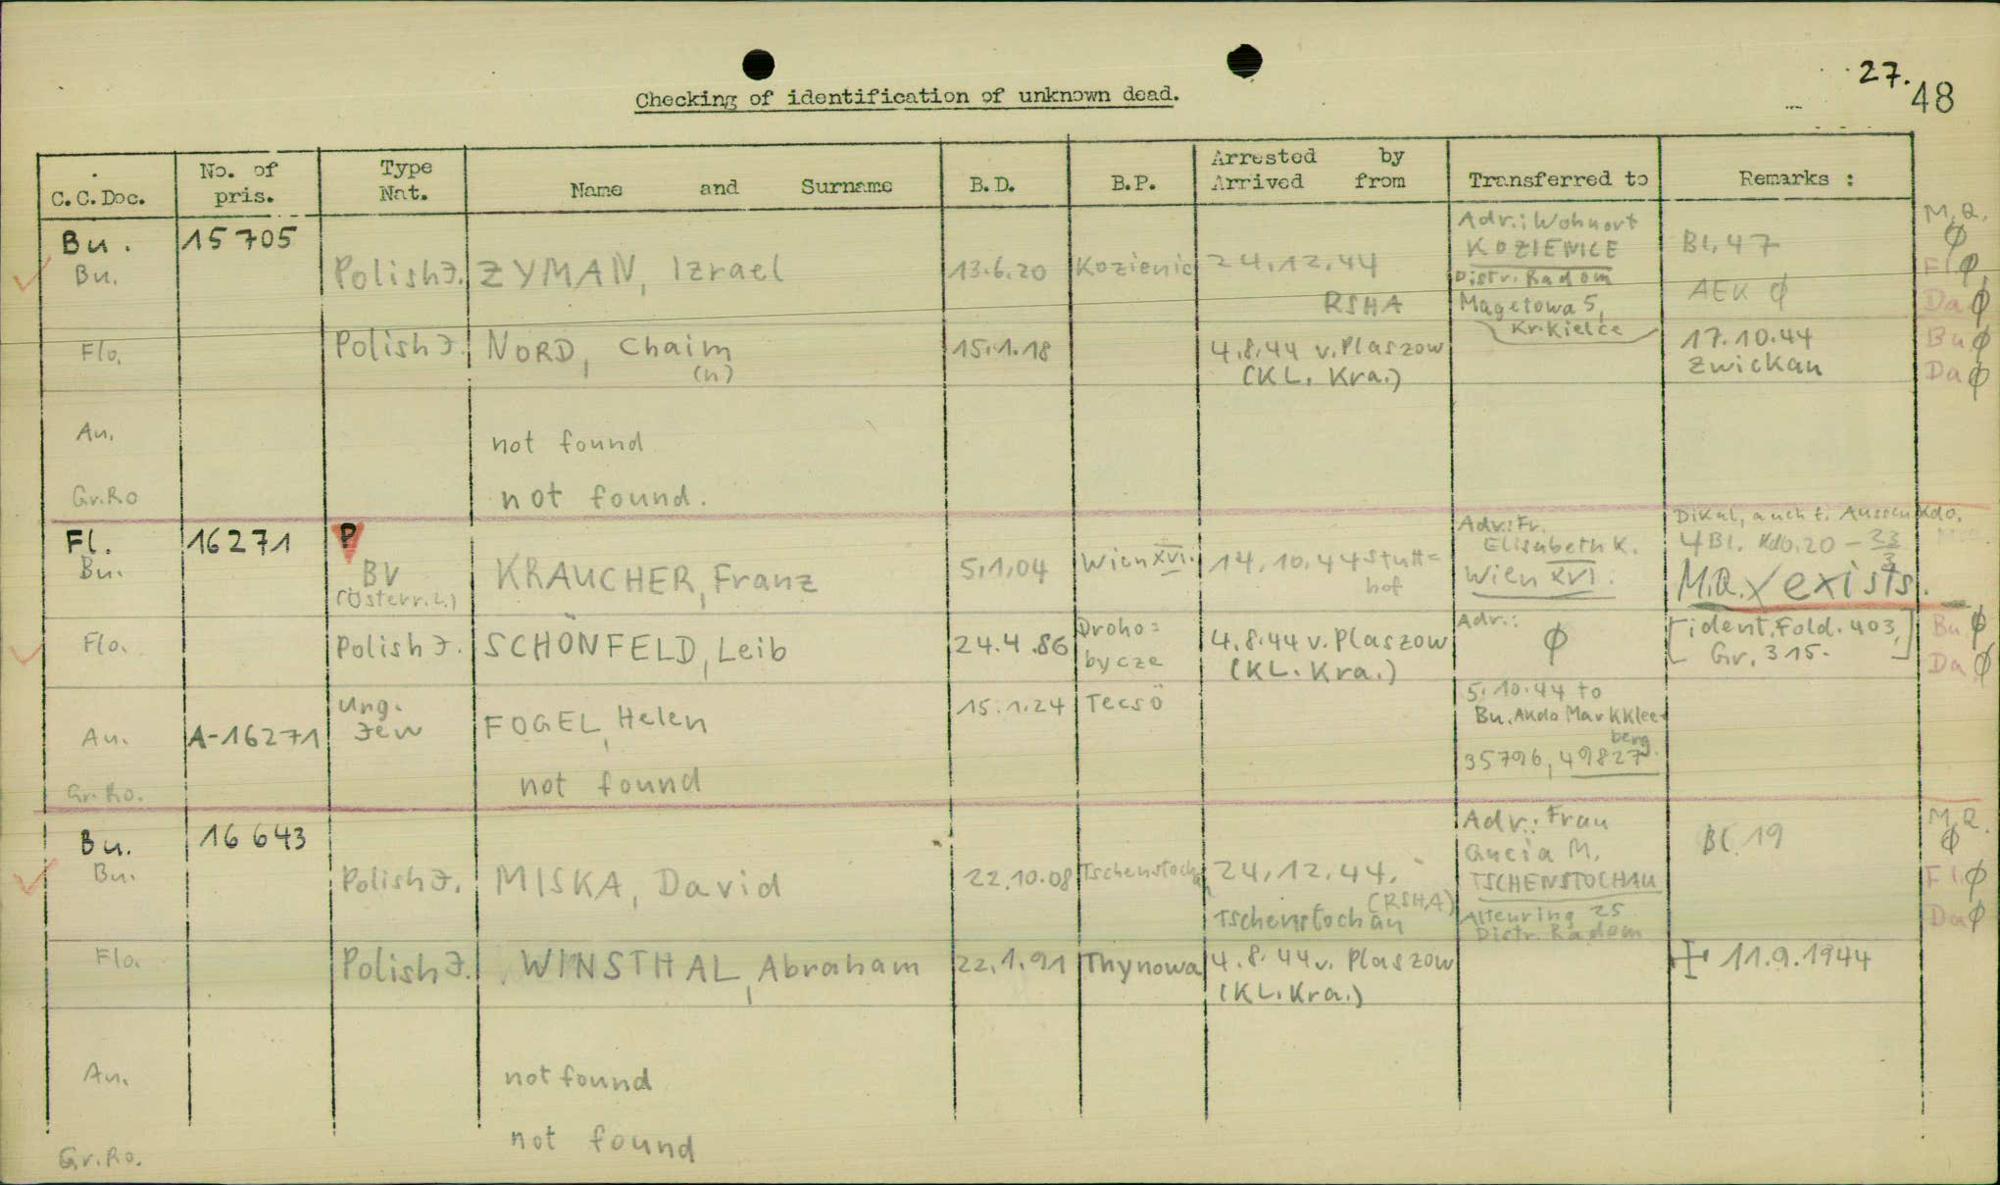 27.
48
Checking of identification of unknown dead.
C.C.Doc.
No. of pris.
Type Nat.
Name and Surname
B.D.
B.P.
Arrested by
Arrived from
Transferred to
Remarks :
M.Q.
Ø
Bu. 15705
Bu. Polish J. ZYMAN, Izrael 13.6.20 Kozienic 24.12.44
RSHA
Adr.: Wohnort
KOZIENICE
Distr. Radom
Magetowa 5,
Kr. Kielce
Bl. 47
AEK Ø
Fl Ø
Da Ø
Flo. Polish J. NORD, Chaim 15.1.18 4.8.44 v. Plaszow
(n) (KL. Kra.)
17.10.44
Zwickau
Bu Ø
Da Ø
Au. not found
Gr.Ro not found.
Fl. 16271 P
Bu. BV KRAUCHER, Franz 5.1.04 Wien XVI. 14.10.44 Stutt=
(Österr.) hof
Adr.: Fr.
Elisabeth K.
Wien XVI.
Dikal, auch f. Aussenkdo.
4 Bl. Kdo. 20 –
M.Q. exists.
Flo. Polish J. SCHÖNFELD, Leib 24.4.86 Droho= 4.8.44 v. Plaszow
bycze (KL. Kra.)
Adr.:
Ø
[ident. Fold. 403,
Gr. 315.]
Bu Ø
Da Ø
Ung.
Au. A-16271 Jew FOGEL, Helen 15.1.24 Tecsö
5.10.44 to
Bu. AKdo Markklee=
berg
35796, 49827.
Gr.Ro. not found
Bu. 16643
Bu. Polish J. MISKA, David 22.10.08 Tschenstochau 24.12.44.
(RSHA)
Tschenstochau
Adr.: Frau
Gucia M.
TSCHENSTOCHAU
Altenring 25
Distr. Radom
Bl. 19
M.Q.
Ø
Fl Ø
Da Ø
Flo. Polish J. WINSTHAL, Abraham 22.1.91 Thynowa 4.8.44 v. Plaszow
(KL. Kra.)
11.9.1944
Au. not found
Gr.Ro. not found